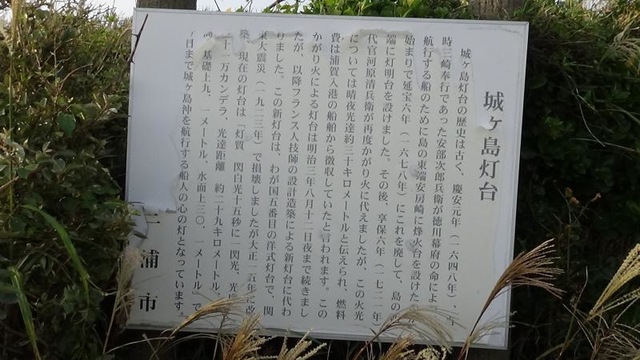 城ヶ島灯台
城ヶ島灯台の歴史は古く、慶安元年（一六四八年）、当
時三崎奉行であった安部次郎兵衛が徳川幕府の命によ
航行する船のために島の東端安房崎に烽火台を設けた
始まりで延宝六年（一六七八年）にこれを廃して、島の西
端に灯明台を設けました。その後、享保六年（一七二一年
代官河原清兵衛が再度かがり火に代えましたが、この火光
については晴夜光達約三十キロメートルと伝えられ、燃料
費は浦賀入港の船舶から徴収していたと言われます。この
かがり火による灯台は明治三年八月十二日夜まで続きまし
たが、以降フランス人技師の設計造築による新灯台に代わ
りました。この新灯台は、わが国五番目の洋式灯台で、関
東大震災（一九二三年）で損壊しましたが大正一五年に改
築、現在の灯台は、灯質 閃白光十五秒に一閃光、光
三十一万カンデラ、光達距離 約二十九キロメートル、
基礎上九．一メートル、水面上三〇．一メートル）で
日まで城ヶ島沖を航行する船人の心の灯となっています。
三浦市